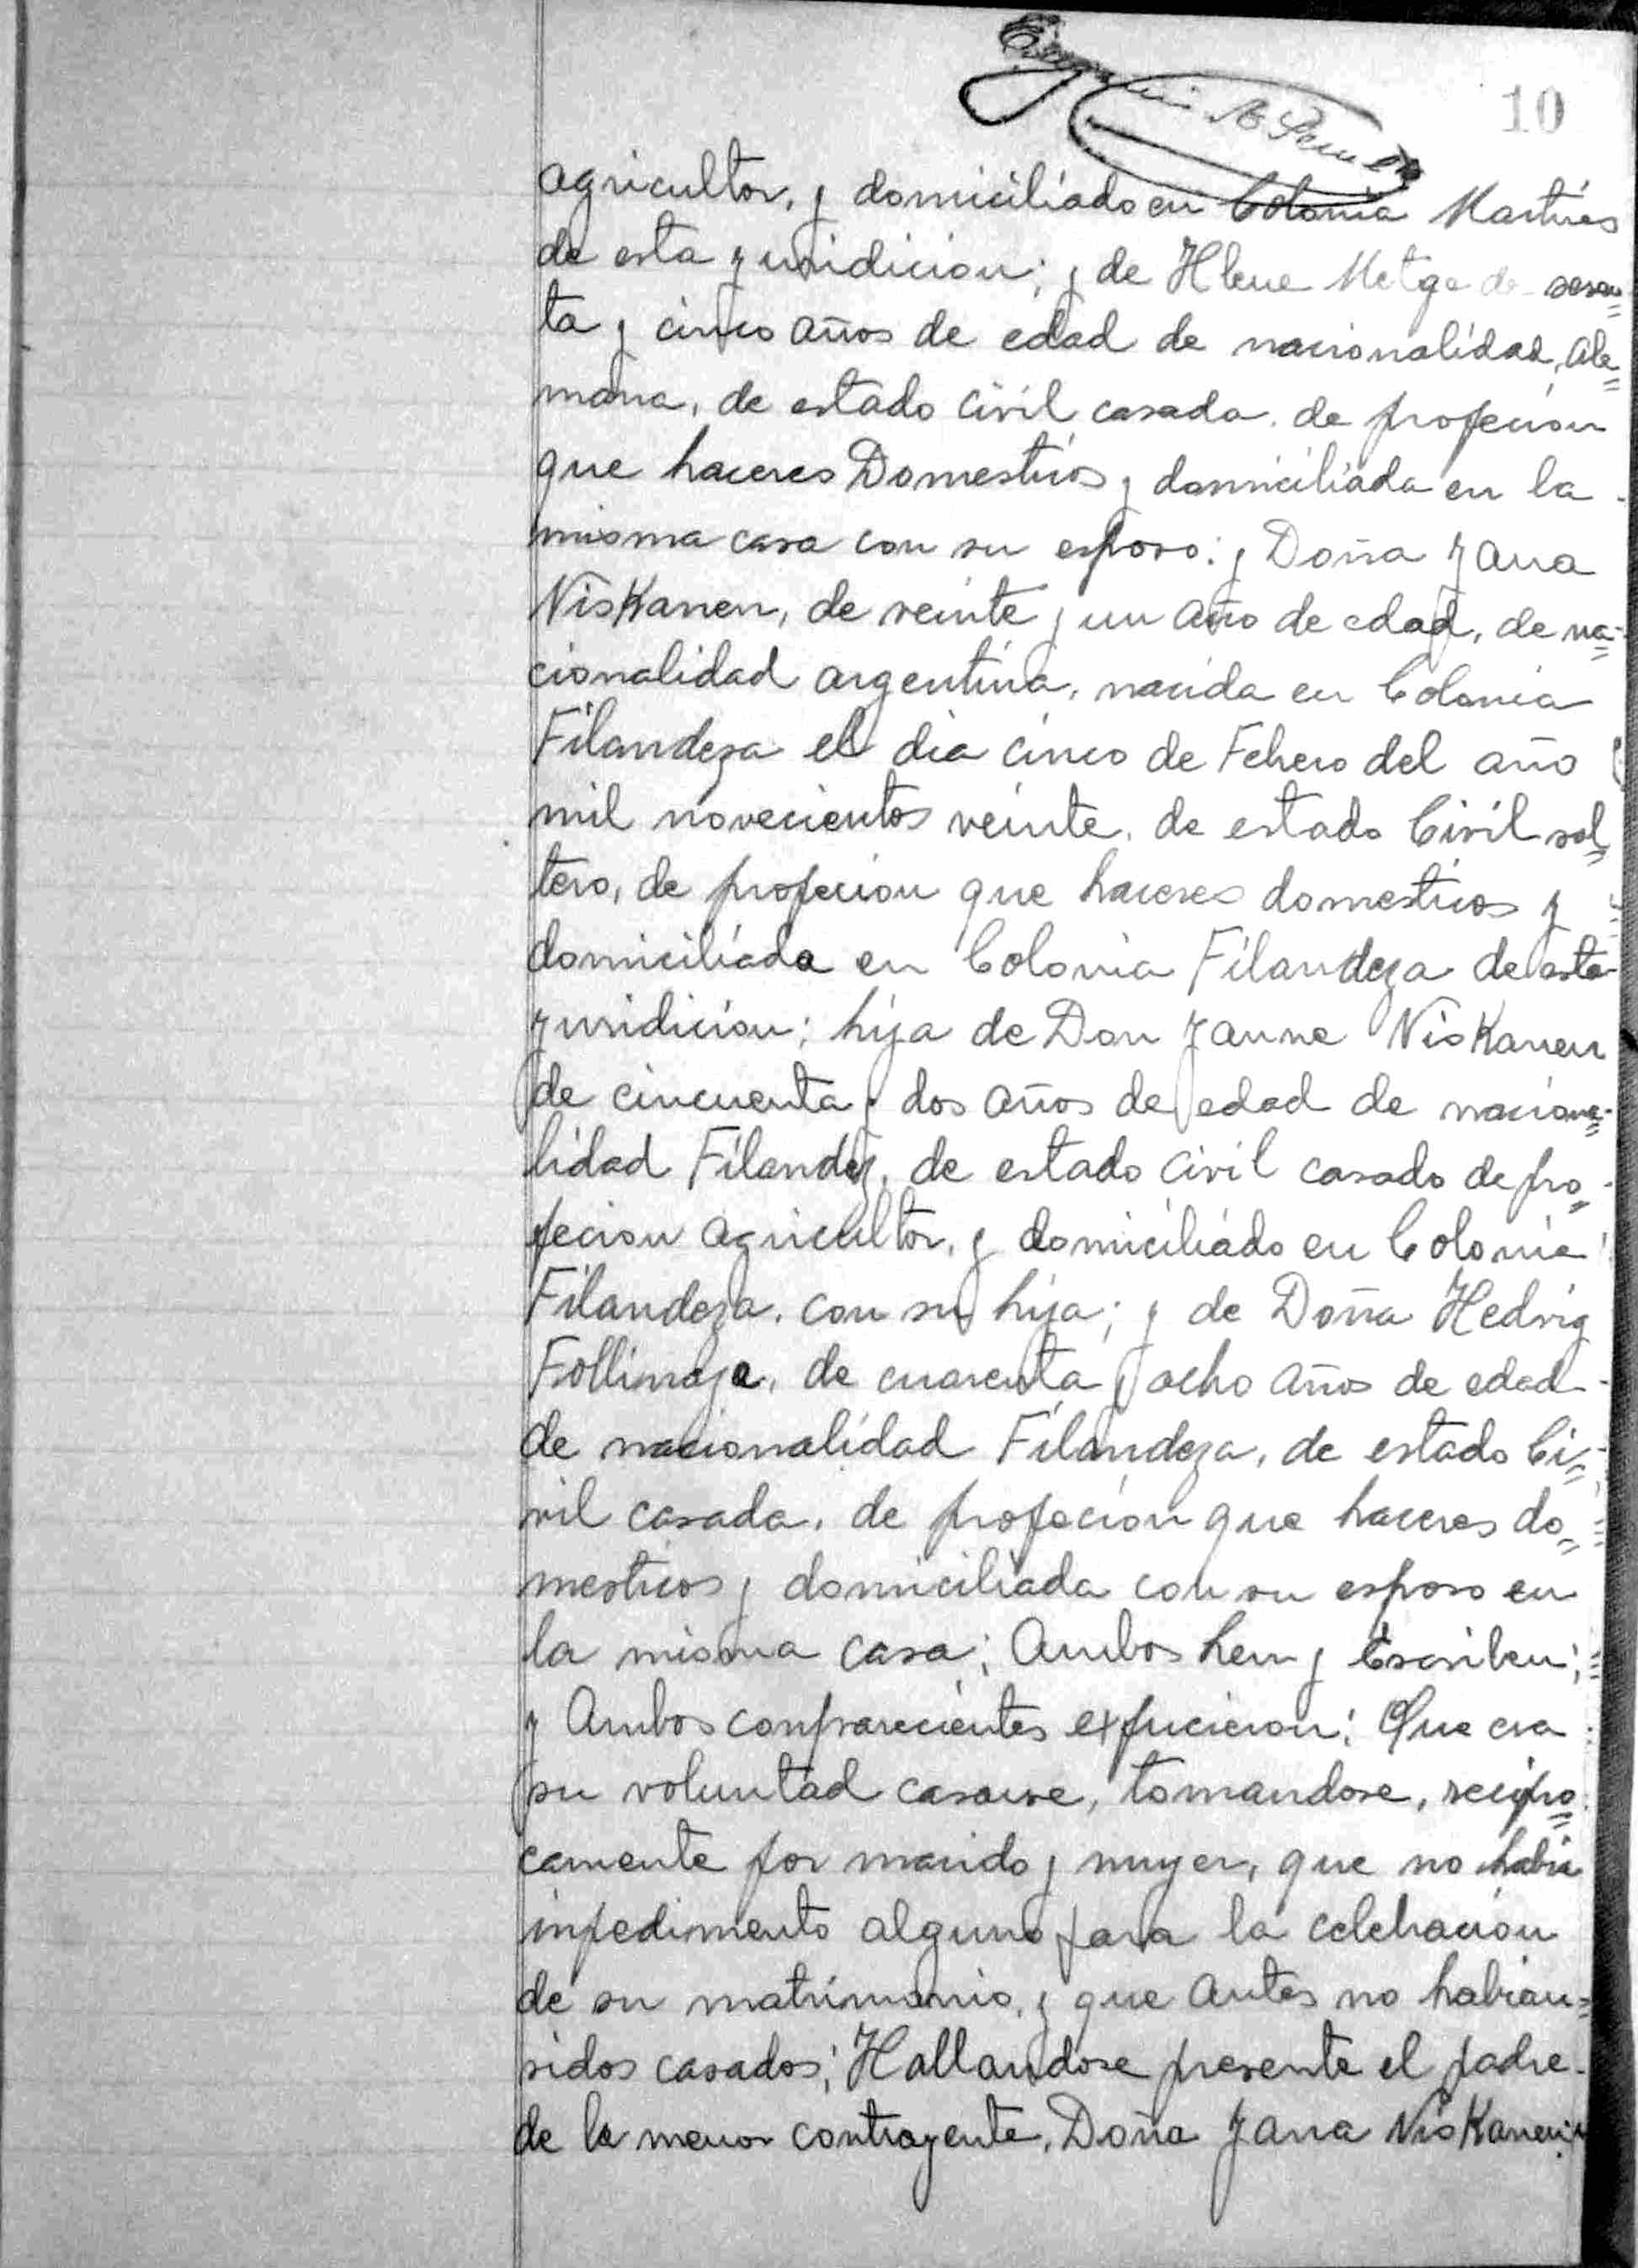 10
agricultor, y domiciliado en Colonia Martires
de esta juridicion; y de Hlene Metge de sesen=
ta y cinco años de edad de nacionalidad, Ale=
mana, de estado civil casada. de profecion
que haceres Domesticos y domiciliada en la
misma casa con su esposo: y Doña Jana
Niskanen, de veinte y un año de edad, de na=
cionalidad argentina, nacida en Colonia
Filandeza el dia cinco de Febrero del año
mil novecientos veinte, de estado Civil sol=
tero, de profecion que haceres domesticos y
domiciliada en Colonia Filandeza de esta
juridicion; hija de Don Janne Niskanen
de cincuenta y dos años de edad de naciona=
lidad Filandez, de estado civil casado de pro=
fecion agricultor, y domiciliado en Colonia
Filandeza, con su hija; y de Doña Hedvig
Follinoja, de cuarenta y ocho años de edad
de nacionalidad Filandeza, de estado Ci=
vil casada, de profecion que haceres do=
mesticos y domiciliada con su esposo en
la misma casa; Ambos len y Escriben;
y Ambos comparecientes expucieron: Que era
su voluntad casarse, tomandose, recipro=
camente por marido y mujer, que no habia
inpedimento alguno para la celebracion
de su matrimonio, y que antes no habian=
sidos casados; Hallandose presente el padre
de la menor contrayente, Doña Jana Niskanen;